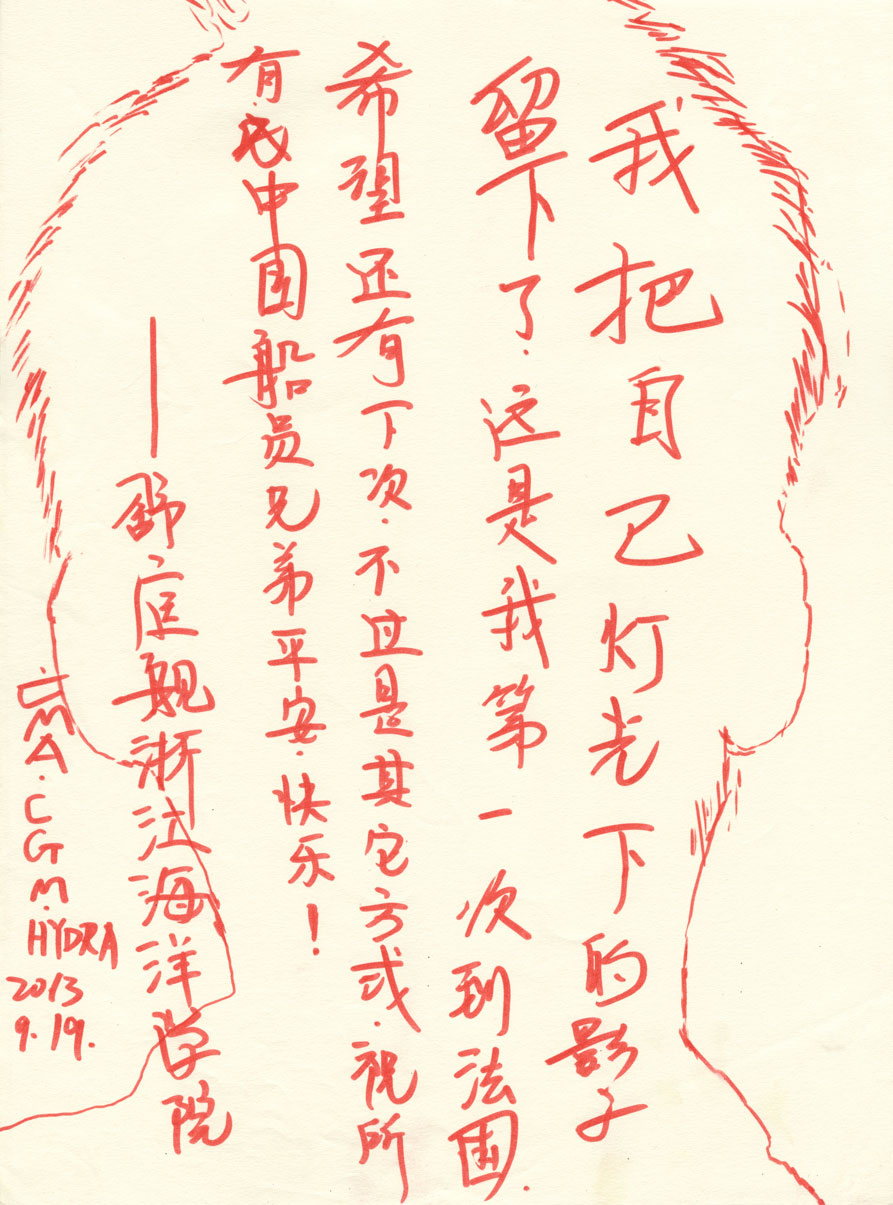 我把自己灯光下的影子
留下了.这是我第一次到法国.
希望还有下次.不过是其它方式.祝所
有.中国船员兄弟平安.快乐!
——舒庭舰浙江海洋学院
CMA.CGM.HYDRA
2013
9.19.